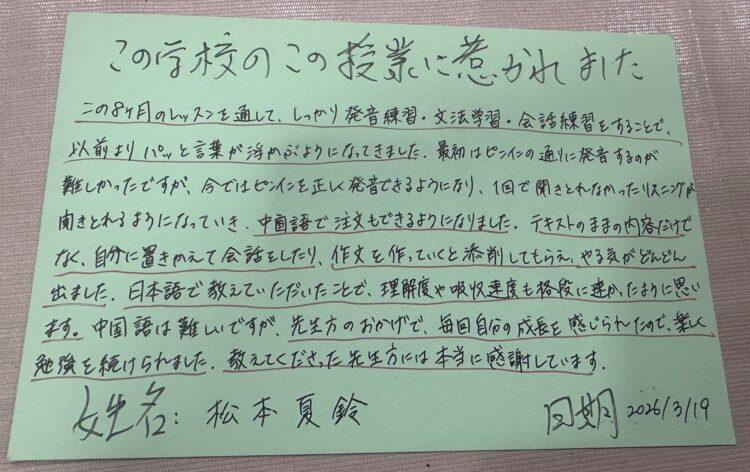 この学校のこの授業に惹かれました
この8ヶ月のレッスンを通して、しっかり発音練習・文法学習・会話練習をすることで、
以前よりパッと言葉が浮かぶようになってきました。最初はピンインの通りに発音するのが
難しかったですが、今ではピンインを正しく発音できるようになり、1回で聞きとれなかったリスニングが
聞きとれるようになっていき、中国語で注文もできるようになりました。テキストのままの内容だけで
なく、自分に置きかえて会話をしたり、作文を作っていくと添削してもらえ、やる気がどんどん
出ました。日本語で教えていただいたことで、理解度や吸収速度も格段に速かったように思い
ます。中国語は難しいですが、先生方のおかげで、毎回自分の成長を感じられたので、楽しく
勉強を続けられました。教えてくださった先生方には本当に感謝しています。
姓名：松本夏鈴 日期 2026/3/19